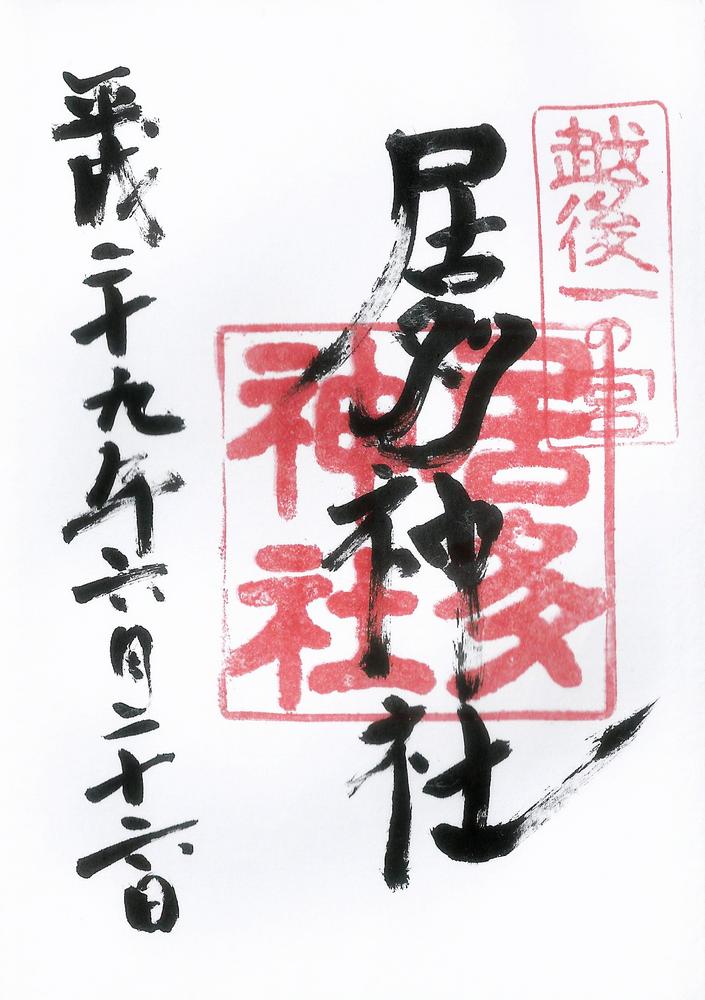 越後一の宮
居多神社
居多神社
平成二十九年六月二十六日